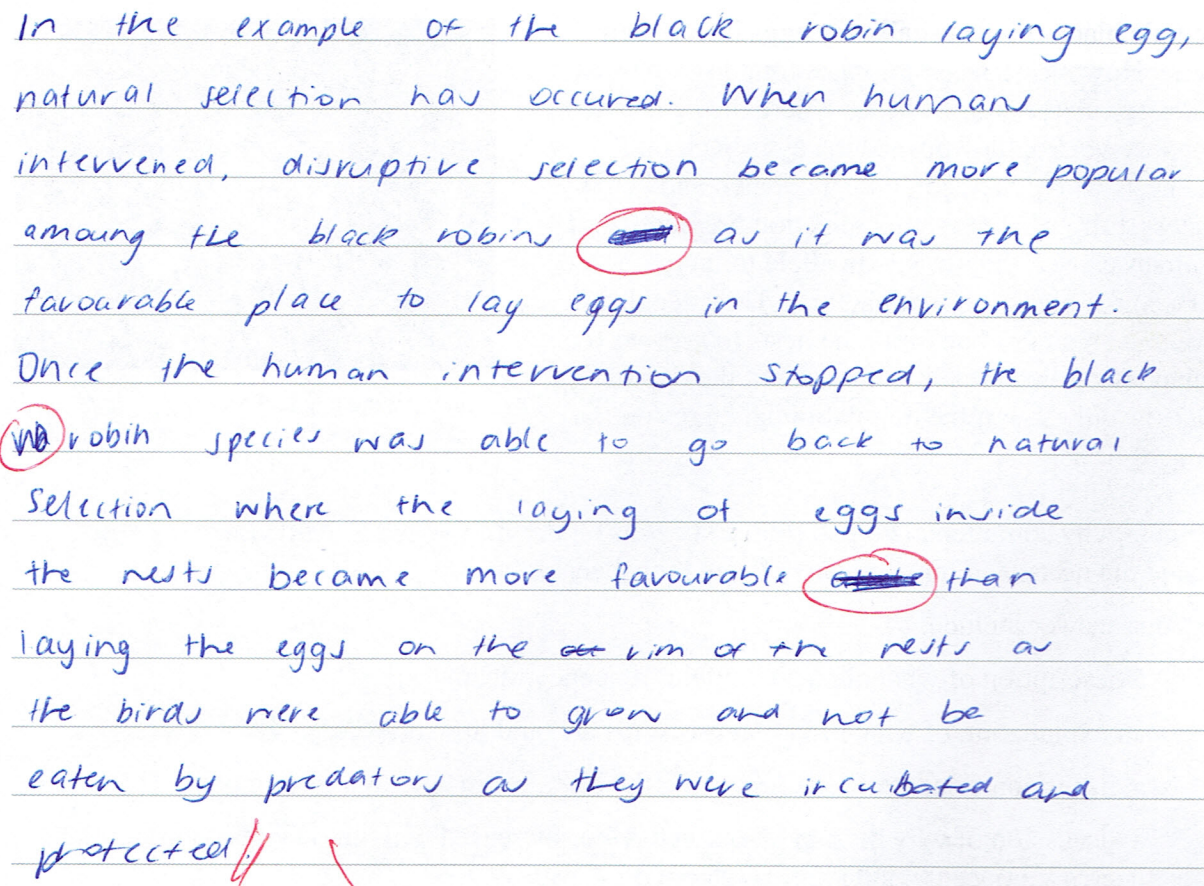 In the example of the black robin laying egg,
natural selection has occured. When humans
intervened, disruptive selection became more popular
amoung the black robins as it was the
favourable place to lay eggs in the environment.
Once the human intervention stopped, the black
robin species was able to go back to natural
selection where the laying of eggs inside
the nests became more favourable than
laying the eggs on the rim of the nests as
the birds were able to grow and not be
eaten by predators as they were incubated and
protected.